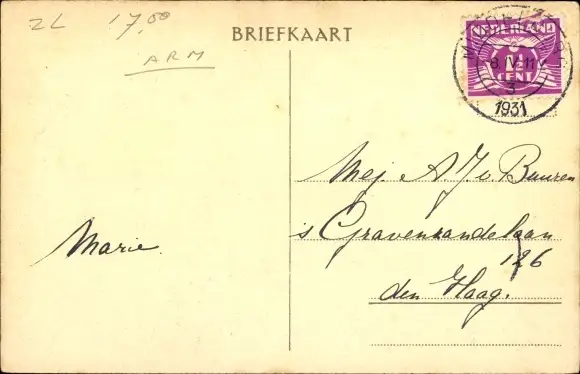 ZL 17,50
ARM
BRIEFKAART
NEDERLAND
1½
CENT
8.IV.11V
1931
Mej A J v. Buuren
's Gravenzandelaan
126
den Haag.
Marie.